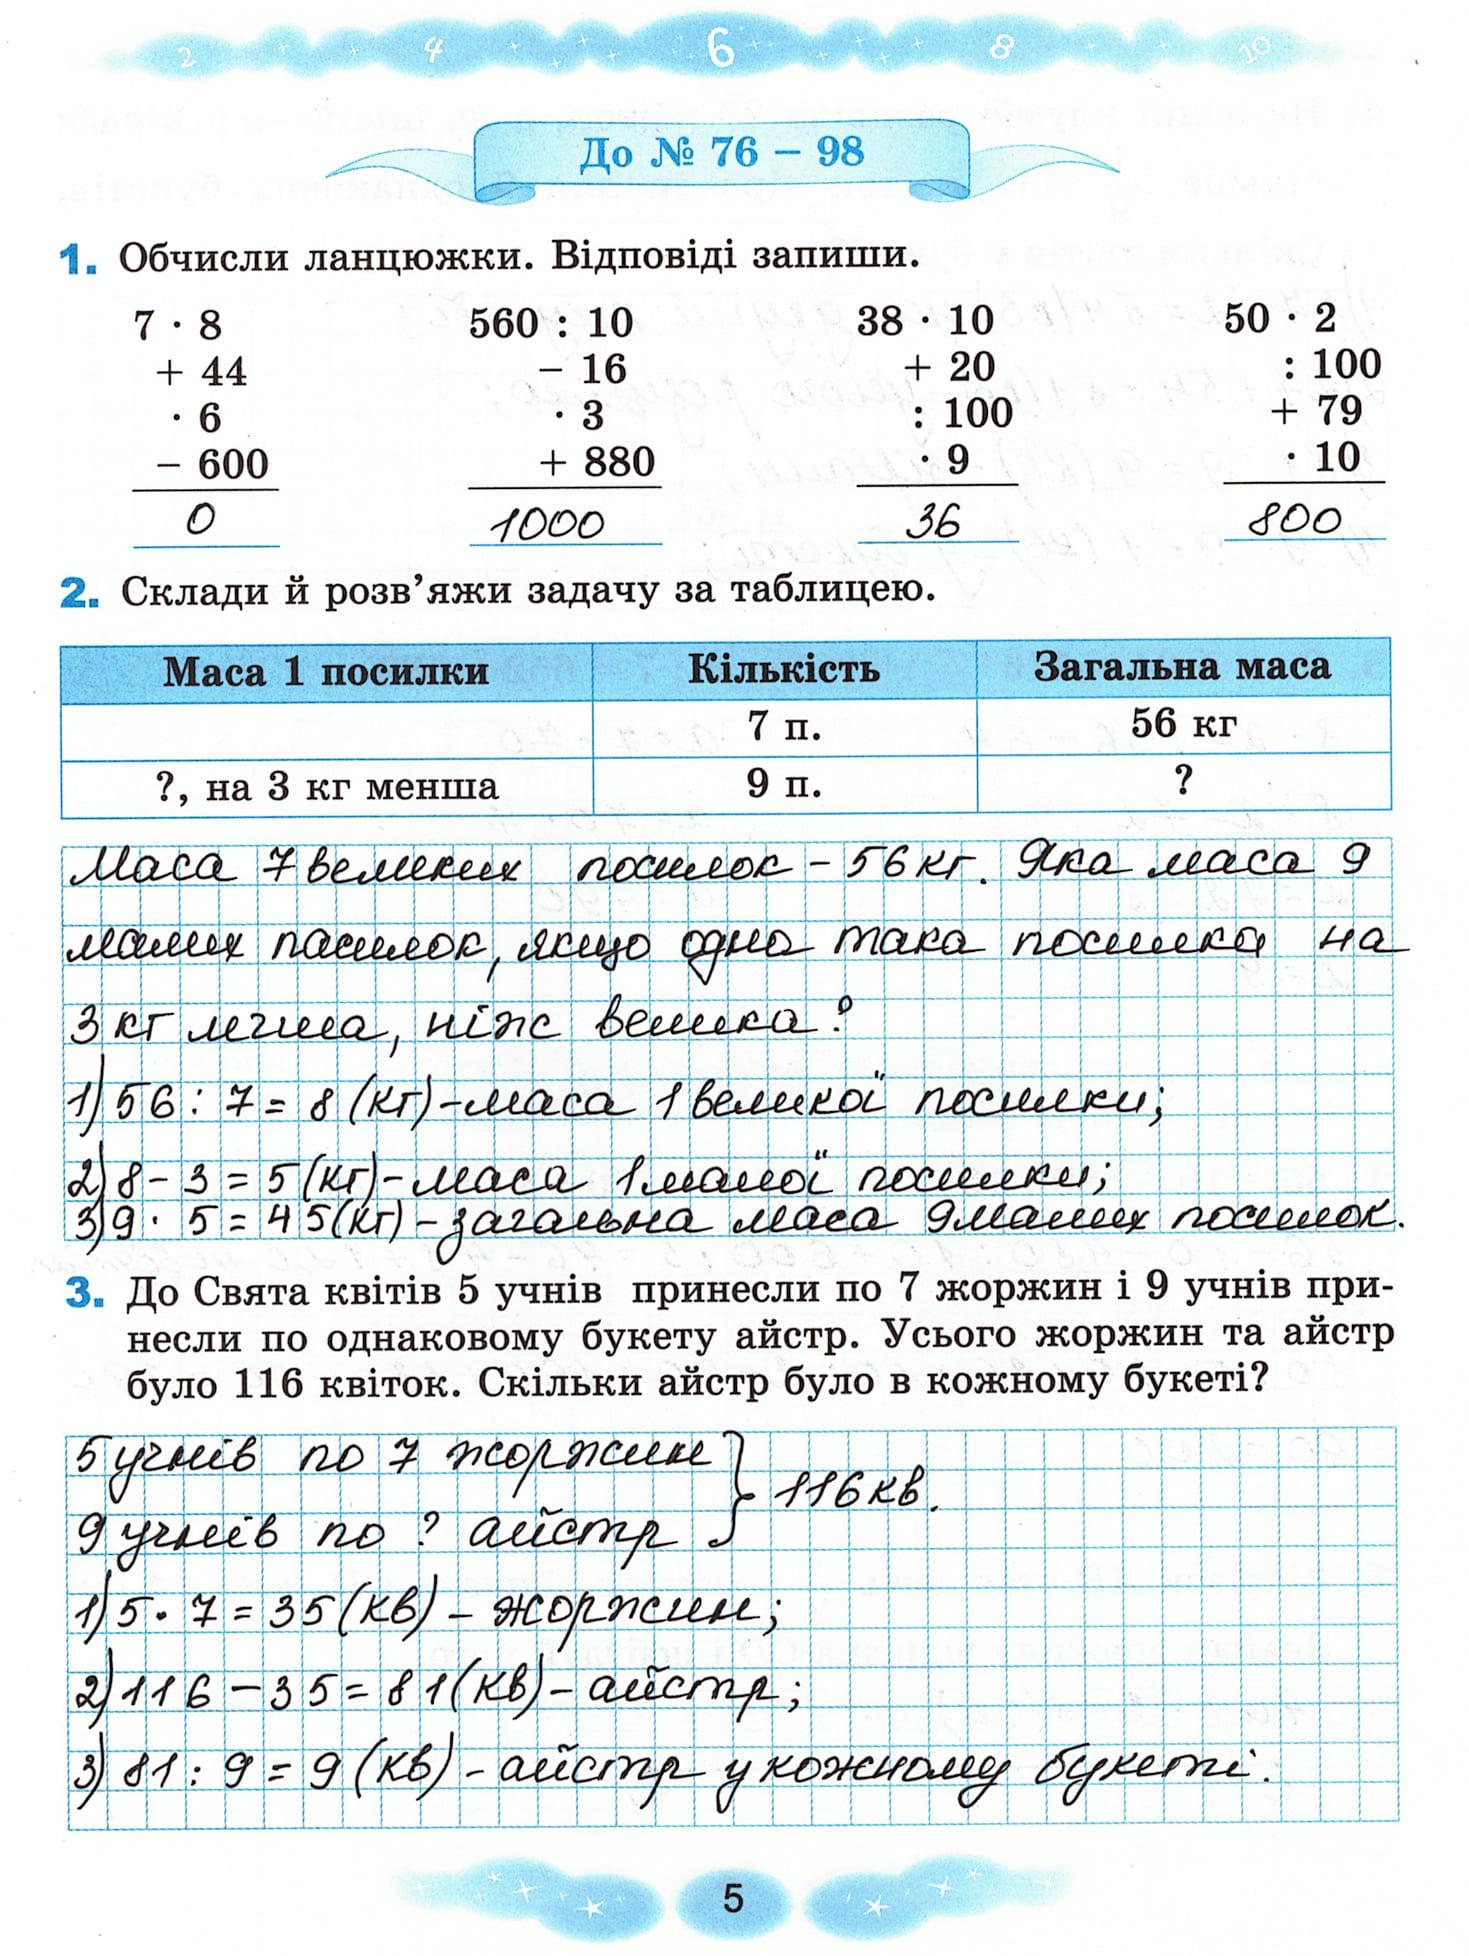 2 4 6 8 10
До № 76 – 98
1. Обчисли ланцюжки. Відповіді запиши.
7 · 8
+ 44
· 6
– 600
0
560 : 10
– 16
· 3
+ 880
1000
38 · 10
+ 20
: 100
· 9
36
50 · 2
: 100
+ 79
· 10
800
2. Склади й розв’яжи задачу за таблицею.
Маса 1 посилки Кількість Загальна маса
7 п. 56 кг
?, на 3 кг менша 9 п. ?
Маса 7 великих посилок – 56 кг. Яка маса 9
малих пасилок, якщо одна така посилка на
3 кг легша, ніж велика?
1) 56 : 7 = 8 (кг) – маса 1 великої посилки;
2) 8 – 3 = 5 (кг) – маса 1 малої посилки;
3) 9 · 5 = 45 (кг) – загальна маса 9 малих посилок.
3. До Свята квітів 5 учнів принесли по 7 жоржин і 9 учнів при-
несли по однаковому букету айстр. Усього жоржин та айстр
було 116 квіток. Скільки айстр було в кожному букеті?
5 учнів по 7 жоржин
116 кв.
9 учнів по ? айстр
1) 5 · 7 = 35 (кв) – жоржин;
2) 116 – 35 = 81 (кв) – айстр;
3) 81 : 9 = 9 (кв) – айстр у кожному букеті.
5